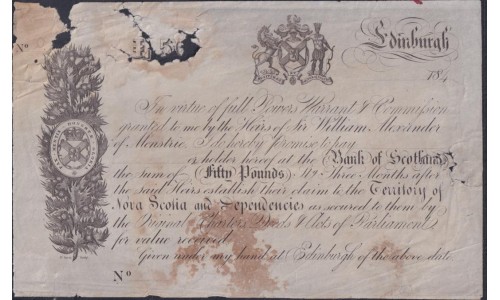 No
£50
Edinburgh
184
In virtue of full Powers Warrant & Commission
granted to me by the Heirs of Sir William Alexander
of Menstrie I do hereby promise to pay
or holder hereof at the Bank of Scotland
the sum of Fifty Pounds Three Months after
the said Heirs establish their claim to the Territory of
Nova Scotia and Dependencies as secured to them by
the Original Charters Deeds & Acts of Parliament
for value received
Given under my hand at Edinburgh of the above date
No